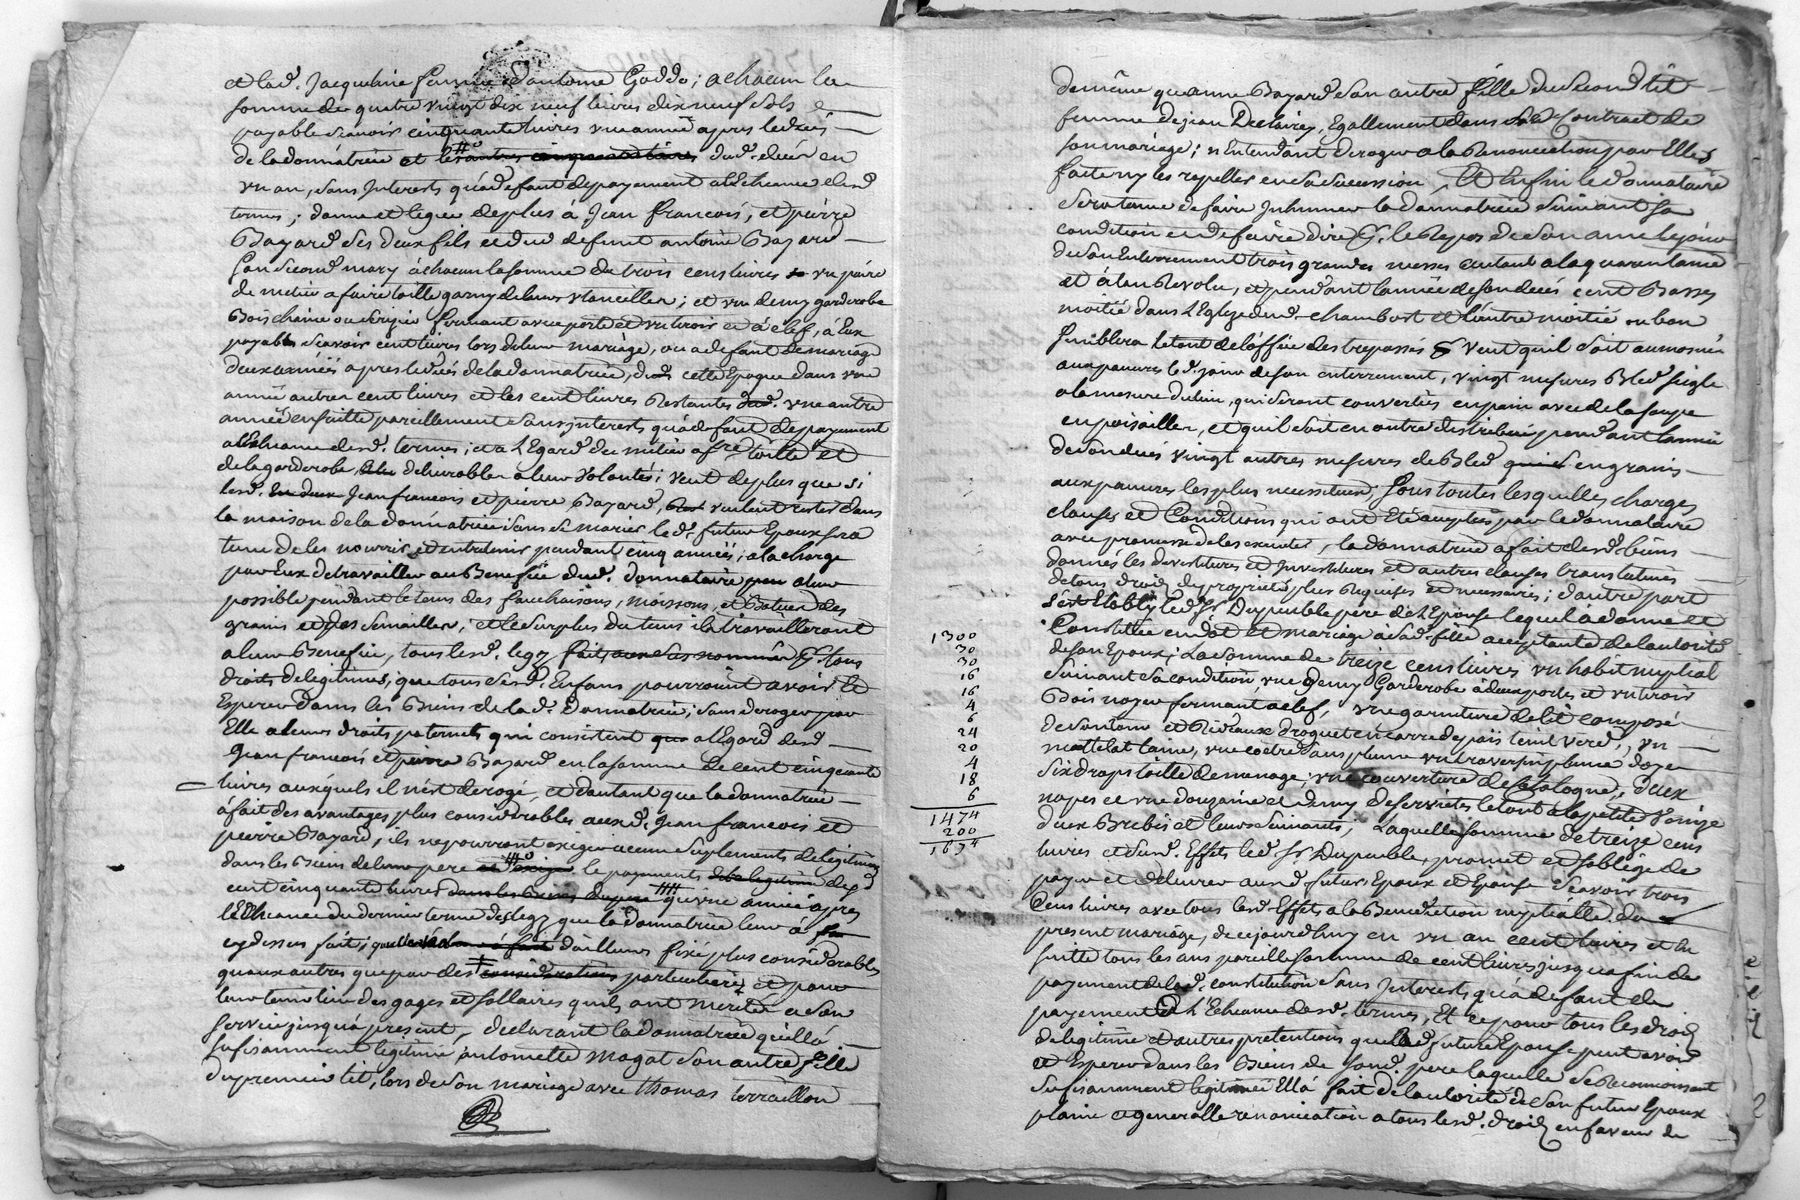 et lad. Jacqueline femme d'antoine Goddo; a chacun la
somme de quatre vingt dix neuf livres dix neuf sols
payable scavoir cinquante livres une année apres le decès
de la donnatrice et les autres cinquante livres dud. decés en
un an, sans Interests qu'a defaut de payement a l'Echeance desd.
termes; donne et legue de plus à Jean francois, et pierre
Bayard ses deux fils et dud defunt antoine Bayard
son second mary à chacun la somme de trois cens livres un paire
de metier a faire toille garny de leurs ; et un demy garderobe
Bois chaine ou fermant avec porte et un tiroir et à clef, à Eux
payable scavoir cent livres lors de leur mariage, ou a defaut de mariage
deux années apres le decés de la donnatrice, cette Epoque dans une
année autres cent livres et les cent livres Restantes dud. une autre
année ensuitte pareillement sans jnterests qua defaut de payement
a l'Echeance desd. termes; et a l'Egard du metier a fre toille et
de la garderobe, delivrables a leur volontés; veut de plus que si
lesd. En deux Jean francois et pierre Bayard, veulent rester dans
la maison de la donnatrice sans se marier le d. futur Epoux sera
tenu de les nourrir et entretenir pendant cinq années; a la charge
par Eux de travailler au Benefice dud. donnataire a leur
possible pendant le tems des fauchaisons, moissons, et Batures des
grains et des semailles; et le surplus du tems ils travailleront
a leur Benefice, tous lesd. legz faits aux sus nommés pr. tous
droits de legitimes, que tous sesd. Enfans pourroient avoir et
Esperer dans les Biens de lad. donnatrice; sans deroger par
Elle a leurs droits paternels qui consistent a l'Egard desd
Jean francois et pierre Bayard en la somme de cent cinquante
livres auxquels il n'est derogé, et d'autant que la donnatrice
à fait des avantages plus considerables auxd. Jean francois et
pierre Bayard, ils ne pourront exiger aucun suplements de legitimes
dans les Biens de leur pere et exiger le payement de la legitime desd
cent cinquante livres dans les Biens du pere qu'une année apres
l'Echeance du dernier terme des legz que la donnatrice leur à
cy dessus fait; d'ailleurs fixé plus considerables
qu'aux autres que par des considerations particulieres et pour
leur tenir lieu des gages et sallaires quils ont merités a son
service jusqu'à present, declarant la donnatrice qu'ella
sufisamment legitimé antoinette Magat son autre fille
du premier lit, lors de son mariage avec thomas terraillon
de même que anne Bayard son autre fille du second lit
femme de jean Declairieu, Egallement dans sond Contract de
son mariage; n'Entendant deroger a la Renonciation par Elles
faite ny les rapeller en sa succession, Et Enfin le donnataire
sera tenu de faire Inhumer la donnatrice suivant sa
condition et de faire dire pr. le Repos de son ame le jour
de son Enterrement trois grandes messes autant a la quarantaine
et à l'an Revolu, et pendant l'année de son decés cent Basses
moitié dans l'Eglize dud. chambost et l'autre moitié ou bon
semblera le tout de l'office des trepassés & veut quil soit aumosné
aux pauvres led. jour de son enterrement, vingt mesures Bled seigle
a la mesure du lieu, qui seront converties en pain avec de la soupe
en , et quil soit en outre distribué pendant l'année
de son decés vingt autres mesures de Bled en grains
aux pauvres les plus necessiteux. Sous toutes lesquelles charges
clauses et Conditions qui ont eté acceptés par le donnataire
avec promesse de les executer, la donnatrice a fait desd. biens
donnés les devestitures et Investitures et autres clauses translatives
de tous droits de proprietés plus Requises et necessaires; d'autre part
s'est Etably led. Sr Dupeuble pere de l'Epouse lequel à donné et
Constitué en dot et mariage a sad. fille acceptante de l'autorité
de son Epoux; la somme de treize cens livres un habit nuptial
suivant sa condition, une demy Garderobe à deux portes et un tiroir
Bois noyer fermant à clef, une garniture de lit composé
de son tour et Rideaux droguet en carré de païs teint verd., un
mattelat laine, une coetre sans plume un traversin plume d'oye
six draps toille de menage, une couverture de Catalogne, deux
napes et une douzaine et demy de serviettes le tout a la petite Venize
deux Brebis et leurs suivants; Laquelle somme de treize cens
livres et susd. Effets led. Sr Dupeuble, promet et s'oblige de
payer et délivrer auxd. futurs Epoux et Epouse scavoir trois
Cens livres avec tous lesd. Effets a la Benediction nuptialle du
present mariage, de cejourdhuy en un an cent livres et En
suitte tous les ans pareille somme de cent livres jusqu'a fin de
payement de lad. constitution sans Interests qu'a defaut de
payement a l'Echeance desd. termes, Et ce pour tous les droits
de legitime et autres pretentions que lad. future Epouse peut avoir
et Esperer dans les Biens de sond. pere laquelle se Reconnoissant
sufisamment legitimée Ella fait de l'autorité de son futur Epoux
plaine et generalle renonciation a tous lesd. droits en faveur de
1300
30
30
16
16
4
6
24
20
4
18
6
1474
200
1674